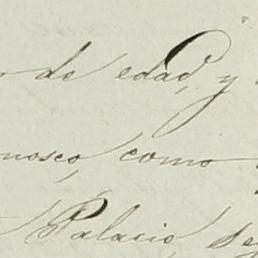 de edad, y
nosco, como
Palacio, se